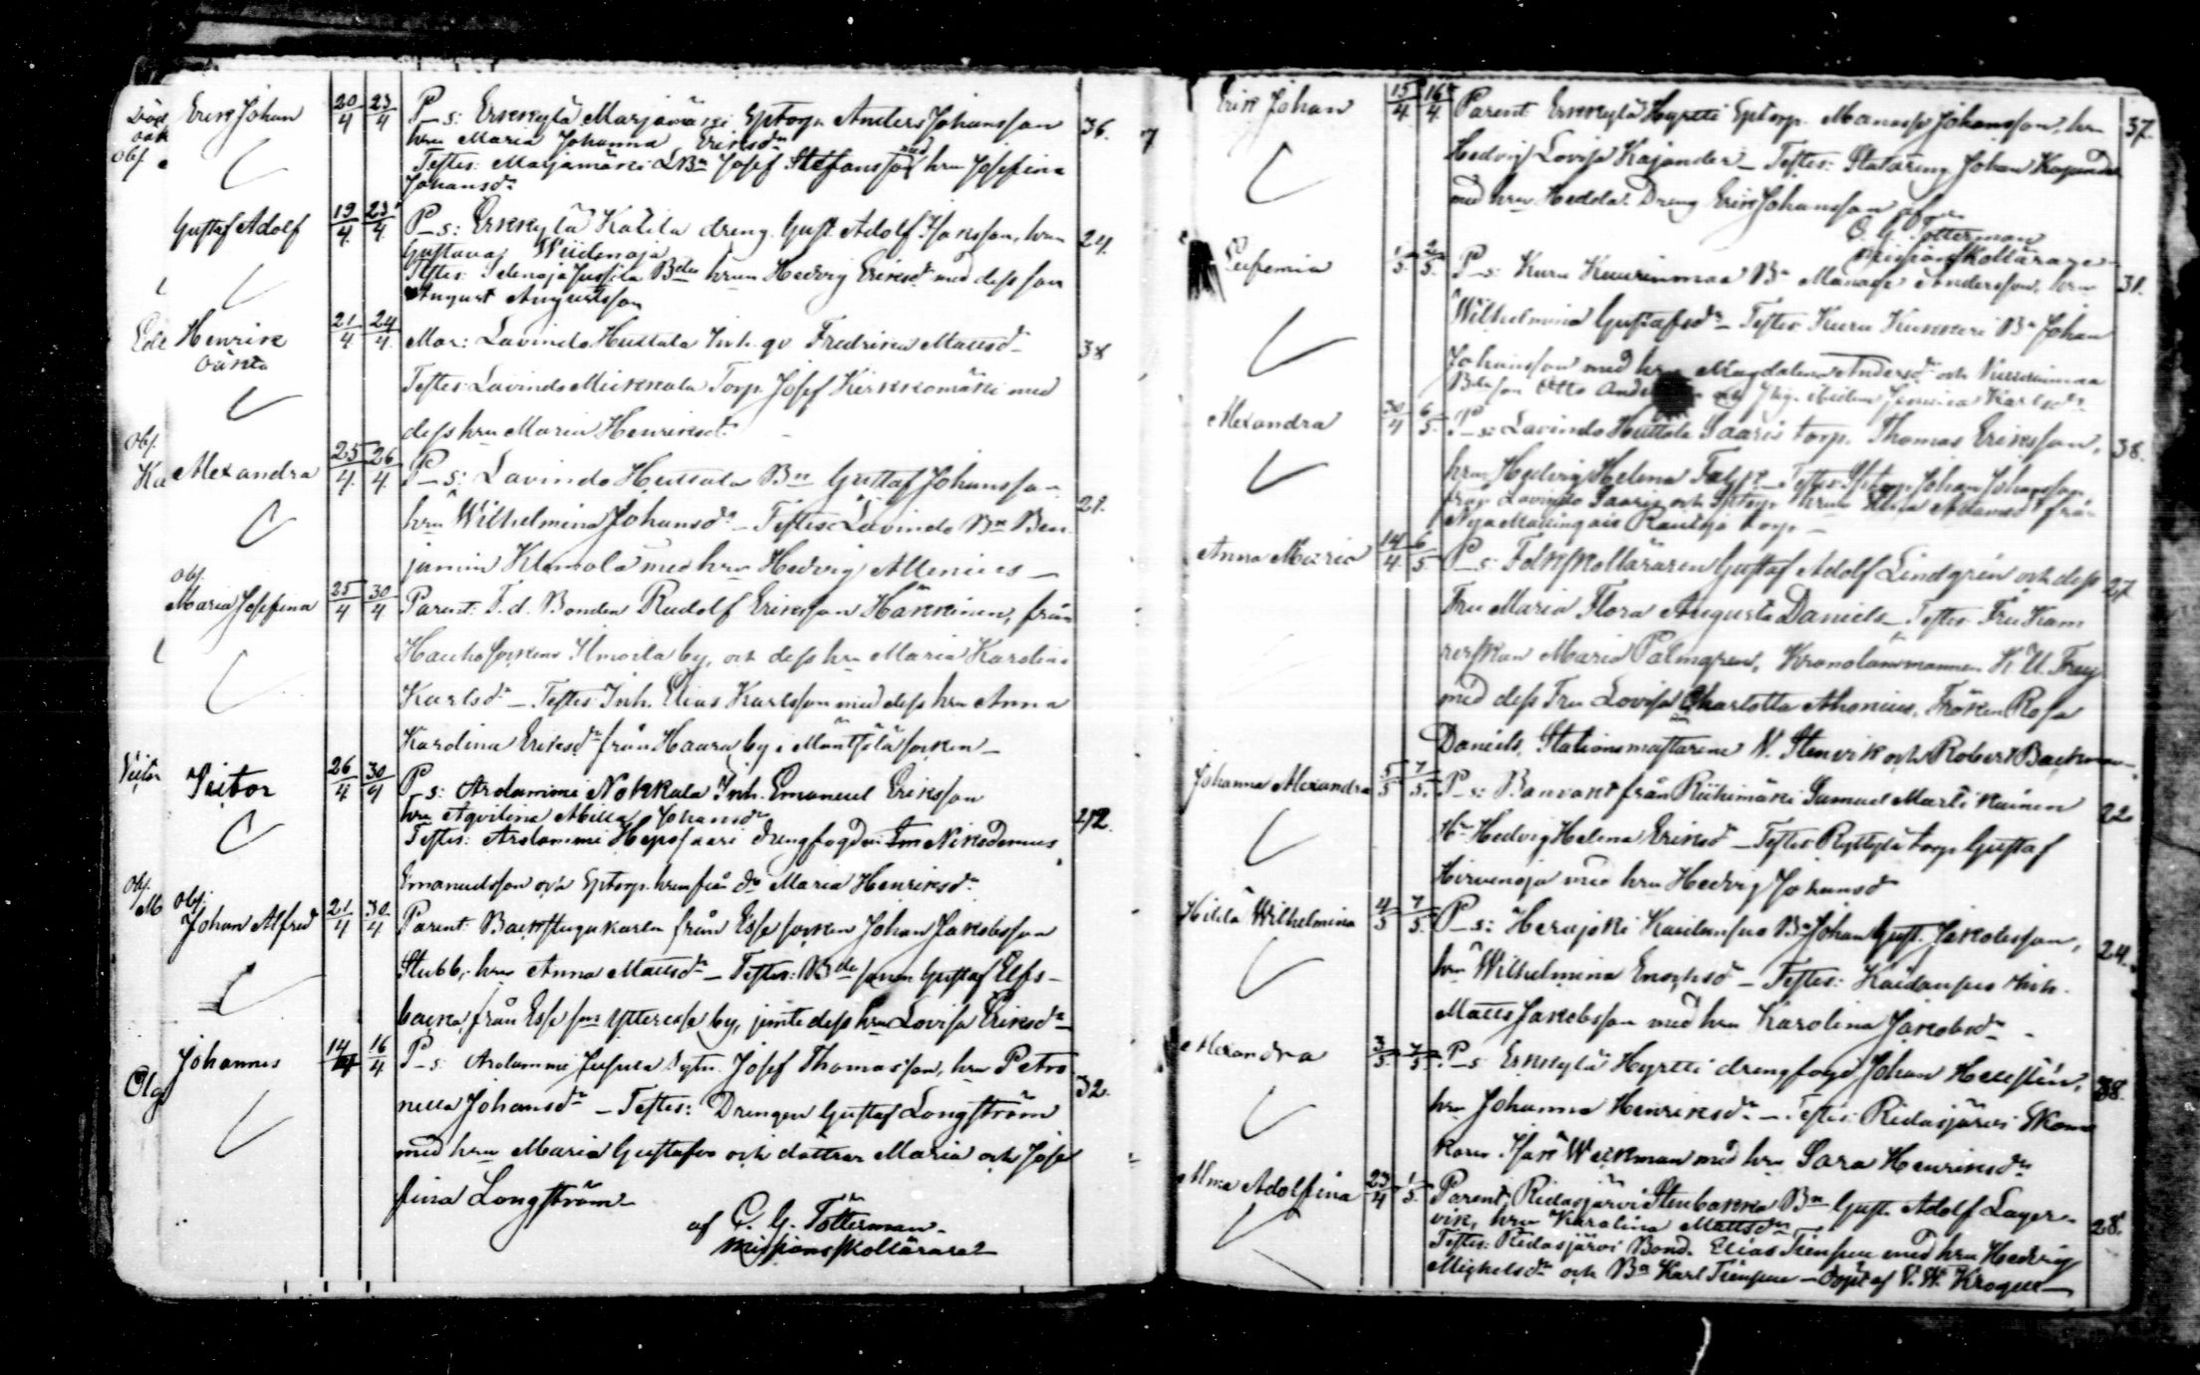 Död
Erik Johan 20/4 23/4 P_s: Erkkylä Marjamäki Eptorp. Anders Johansson 36.
hru Maria Johanna Eriksdr
Obs.
Testes: Marjamäki LBn Josef Stefansson med hru Josefina
Johansdr
Gustaf Adolf 19/4 23/4 P_s: Erkkylä Kalila dreng Gust. Adolf Isaksson, hru 24.
Gustava Wiidenoja
Testes: Jussila Bdes hrun Hedvig Eriksdr med dess son
August Augustsson
Henrik 21/4 24/4 Mor: Lavindo Huttala Inh. qv Fredrika Mattsd 38
oäkta
Testes Lavindo Mikkola Torp. Josef Kirkkomäki med
dess hru Maria Henriksdr
Obs.
Alexandra 25/4 26/4 P_s: Lavindo Huttala Bn Gustaf Johansson
hru Wilhelmina Johansdr _ Testes: Lavindo Bn Ben 21.
jamin Klemola med hru Hedvig Allenius _
Obs.
Maria Josefina 25/4 30/4 Parent: F.d. Bonden Rudolf Eriksson Häkkinen, från
Hauho socken Ilmoila by, och dess hru Maria Karolina
Karlsdr _ Testes Inh. Elias Karlsson med dess hru Anna
Karolina Eriksdr från Haara by i Mäntsälä socken _
Victor Victor 26/4 30/4 P_s: Arolammi Nokkala Inh. Emanuel Eriksson
hru Aqvilina Johansdr 42.
Testes: Arolammi Heposaari drengfogden Nikodemus
Emanuelsson och Eptorp. hrun från do Maria Henriksdr
Obs. Obs.
Johan Alfred 21/4 30/4 Parent Backstugukarln från Esse socken Johan Jakobsson
Stubb, hru Anna Mattsdr _ Testes: Bde sonen Gustaf Elfs-
backa från Esse sn Ytteresse by, jemte dess hru Lovisa Eriksdr
Johannes 14/4 16/4 P_s: Arolammi Jussila Josef Thomasson, hru Petro 32.
nella Johansdr _ Testes: Drengen Gustaf Longström
med hru Maria Gustafva och döttrar Maria och Jose
fina Longström
af C. G. Tötterman
Missionsskollärare
Erik Johan 15/4 16/4 Parent Erkkylä Hyretti Eptorp. Manasse Johansson, hru 37.
Hedvig Lovisa Kajander _ Testes: Statdreng Johan Kajander
med hru Hedda. Dreng Erik Johansson af
C. G. Tötterman
Missionsskollärare
Eufemia 1/5 2/5 P_s: Kuru Kuurinmaa Bn Manasse Andersson, hru 31.
Wilhelmina Gustafsdr _ Testes Kuru Kukkeri Bn Johan
Johansson med hru Magdalena Andersdr och Kuurinmaa
Bdeson Otto Karlsdr
Alexandra 30/4 6/5 P_s: Lavindo Huttala Saaris torp. Thomas Eriksson, 38.
hru Hedvig Helena _ Testes Johan Johansson
från Lavindo Saaris och från
Anna Maria 14/4 6/5 P_s: Folkskolläraren Gustaf Adolf Lindgrén och dess 27
Fru Maria Flora Augusta Daniels _ Testes Fru Kam
rerskan Maria Palmgren, Kronolänsmannen K. U. Frey
med dess Fru Lovisa Charlotta Ahonius, Fröken Rosa
Daniels, Stationsmästarene N. Stenvik och Robert Backman
Johanna Alexandra 5/5 7/5 P_s: Banvakt från Riihimäki Samuel Martikainen 22
Hu Hedvig Helena Eriksd _ Testes Ryttylä torp Gustaf
Hirvenoja med hru Hedvig Johansd
Hilda Wilhelmina 4/5 7/5 P_s: Herajoki Kaidansuo Bn Johan Gust. Jakobsson, 24.
hru Wilhelmina Enoksd _ Testes: Kaidansuo Inh.
Matts Jakobsson med hru Karolina Jakobsdr
Alexandra 3/5 7/5 P_s Erkkylä Hyretti drengfogd Johan Hellstén, 38.
hru Johanna Henriksdr _ Testes: Ridasjärvi Skoma
karn Isak Weckman med hru Sara Henriksdr
Alma Adolfina 23/4 1/5 Parent: Ridasjärvi Stenbacka Bn Gust. Adolf Lager- 28.
vik, hru Karolina Mattsdr
Testes: Ridasjärvi Bond. Elias Tiensuu med hru Hedvig
Michelsdr och Bn Karl Tiensuu _ döpt af V. W. Krogell